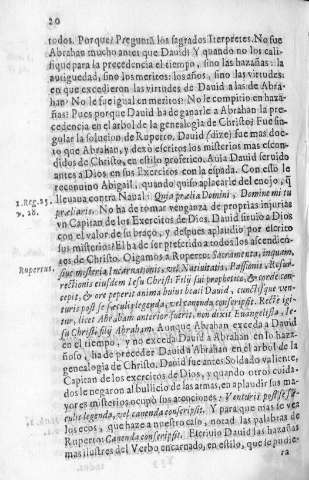 20
todos. Porque? Preguntã los sagrados Iterpretes. No fue
Abrahan mucho antes que Dauid? Y quando no los cali-
fique para la precedencia el tiempo, sino las hazañas: la
antiguedad, sino los meritos: los años, sino las virtudes:
en que excedieron las virtudes de Dauid a las de Abra-
han? No le fue igual en meritos? No le compitio en haza-
ñas? Pues porque Dauid ha de ganarle a Abrahan la pre-
cedencia en el arbol de la genealogia de Christo? Fue sin-
gular la solucion de Ruperto. Dauid (dize) fue mas doc-
to que Abrahan, y dexò escritos los misterios mas escon-
didos de Christo, en estilo profetico. Auia Dauid seruido
antes a Dios en sus Exercitos con la espada. Con esto le
reconuino Abigail, quando quiso aplacarle del enojo, q̃
1. Reg. 25. lleuaua contra Nabal: Quia prælia Domini, Domine mi tu
v. 28. præliaris. No ha de tomar venganza de proprias injurias
vn Capitan de los Exercitos de Dios. Dauid siruio a Dios
con el valor de su braço, y despues aplaudio por escrito
sus misterios? El ha de ser preferido a todos los ascendien-
tes de Christo. Oigamos a Ruperto: Sacramenta, inquam,
Rupertus. siue mysteria Incarnationis, vel Natiuitatis, Passionis, Resur-
rectionis eiusdem Iesu Christi Filij sui prophetico, & corde con-
cepit, & ore peperit anima huius beati Dauid, cunctisque ven-
turis post se sæculis legenda, vel canenda conscripsit. Recte igi-
tur, licet Abraham anterior fuerit, non dixit Euangelista, Ie-
su Christi, filij Abraham. Aunque Abrahan exceda a Dauid
en el tiempo, y no exceda Dauid a Abrahan en lo haza-
ñoso, ha de preceder Dauid a Abrahan en el arbol de la
genealogia de Christo. Dauid fue antes Soldado valiente,
Capitan de los exercitos de Dios, y quando otros cuida-
dos le negaron al bullicio de las armas, en aplaudir sus ma-
yores misterios ocupò sus atenciones: Venturis post se sæ-
culis legenda, vel canenda conscripsit. Y para que mas se vea
los ecos, que haze a nuestro caso, notad las palabras de
Ruperto: Canenda conscripsit. Escriuio Dauid las hazañas
mas ilustres del Verbo encarnado, en estilo, que le pudie-
ra